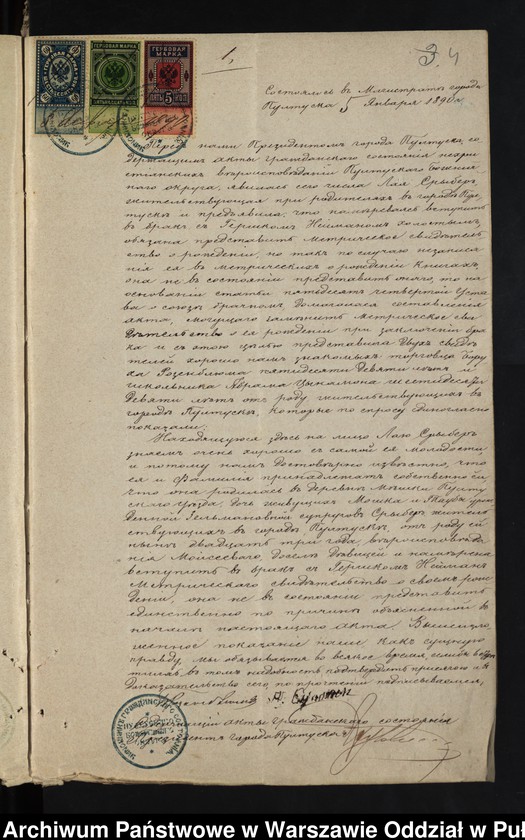 1,
3. 4
ГЕРБОВАЯ МАРКА
ГЕРБОВАЯ МАРКА
5
Состоялось въ Магистратѣ города
Пултуска 5 Января 1890 г.
Передъ нами Президентомъ города Пултуска, со
держащимъ акты гражданского состоянія нехри
стіянскихъ вѣроисповѣданій Пултускаго
ного округа, явилась сего числа Лая Срыберъ
жительствующая при родителяхъ въ городѣ Пул
тускѣ и предъявила, что намѣреваясь вступить
въ бракъ съ Гершкомъ Нейманомъ холостымъ,
обязана представить метрическое свидѣтель
ство о рожденіи, но такъ по случаю незаписа
нія ея въ метрическихъ о рожденіи книгахъ,
она не въ состояніи представить онаго, то на
основаніи статьи пятьдесятъ четвертой Уста
ва о союзѣ брачномъ, домогалась составленія
акта, могущаго замѣнить метрическое сви
дѣтельство о ея рожденіи при заключеніи бра
ка и съ этою цѣлью представила двухъ свидѣ
телей хорошо намъ знакомыхъ торговца
Розенблюма пятидесяти девяти лѣтъ и
школьника Абрама Цынамона шестидесяти
девяти лѣтъ отъ роду жительствующихъ въ
городѣ Пултускѣ, которые по спросу единогласно
показали:
Находящуюся здѣсь на лицо Лаю Срыберъ
знаемъ очень хорошо съ самой ея молодости
и потому намъ достовѣрно извѣстно, что
ея и фамилія принадлежатъ собственно ей
что она родилась въ деревнѣ Пулту
скаго уѣзда, дочь живущихъ Мошка и
денной Гельмановной супруговъ Срыберъ житель
ствующихъ въ городѣ Пултускѣ, отъ роду ей
нынѣ двадцать три года, вѣроисповѣда
нія Мойсеевого, доселѣ дѣвицей и намѣрена
вступить въ бракъ съ Гершкомъ Нейманъ
Метрического свидѣтельства о своемъ рож
деніи, она не въ состояніи представить
единственно по причинѣ объясненной въ
началѣ настоящаго акта. Вышеизло
женное показаніе наше какъ сущную
правду, мы обязываемся во всякое время, если бы встрѣ
тилась въ томъ надобность подтвердить присягою а въ
доказательство сего по прочтеніи подписываемся,
акты гражданского состоянія
Президентъ города Пултуска
Archiwum Państwowe w Warszawie Oddział w Pu